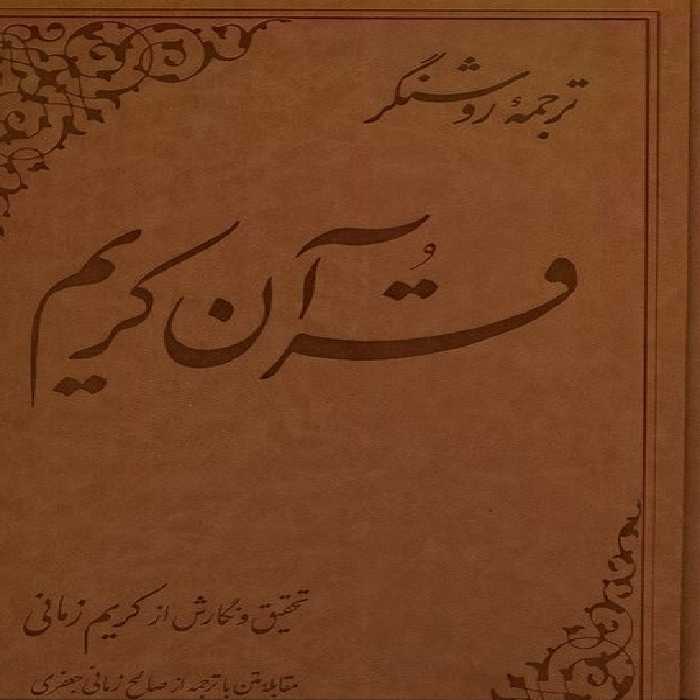 ترجمهٔ روشنگر
قُرآن کریم
تحقیق و نگارش از کریم زمانی
مقابله متن با ترجمه از صالح زمانی جعفری